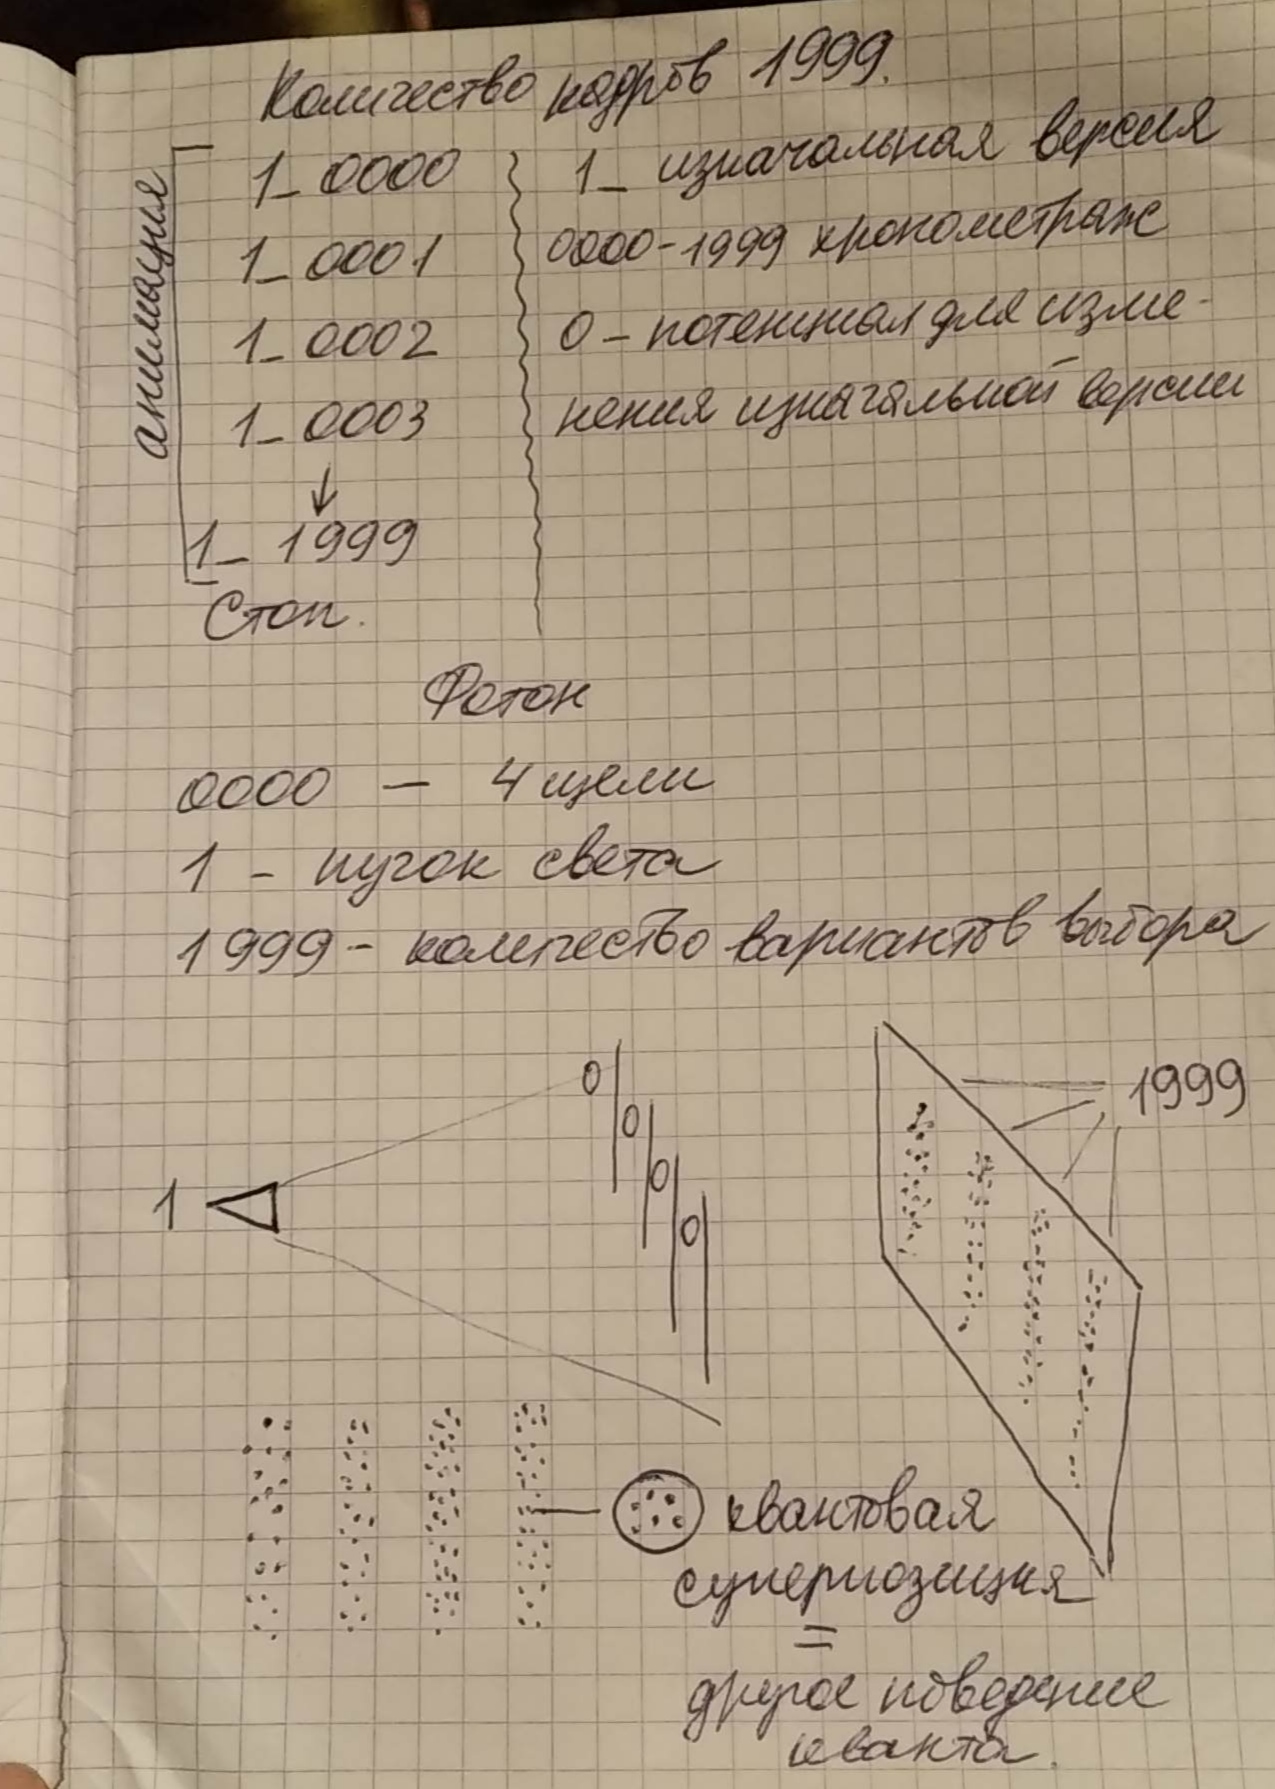 Количество кадров 1999.
анимация
1_0000
1_0001
1_0002
1_0003
1_1999
Стоп.
1_ изначальная версия
0000-1999 хронометраж
0 - потенциал для изме-
нения изначальной версии
Фотон
0000 - 4 щели
1 - пучок света
1999 - количество вариантов выбора
1
0
0
0
0
1999
квантовая
суперпозиция
=
другое поведение
кванта.